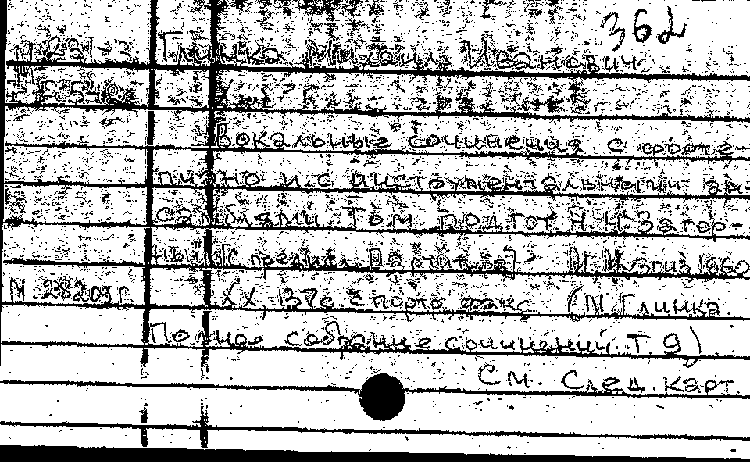 362
Глинка Михаил Иванович
Вокальные сочинения с форте-
пиано и с инструментальными ан-
самблями. Том подгот. Н. Н. Загор-
ный [С предисл. М. Музгиз, 1960
М. 28203г XX, 378 с портр. факс (М. Глинка
Полное собрание сочинений. Т. 9)
См. След. карт.